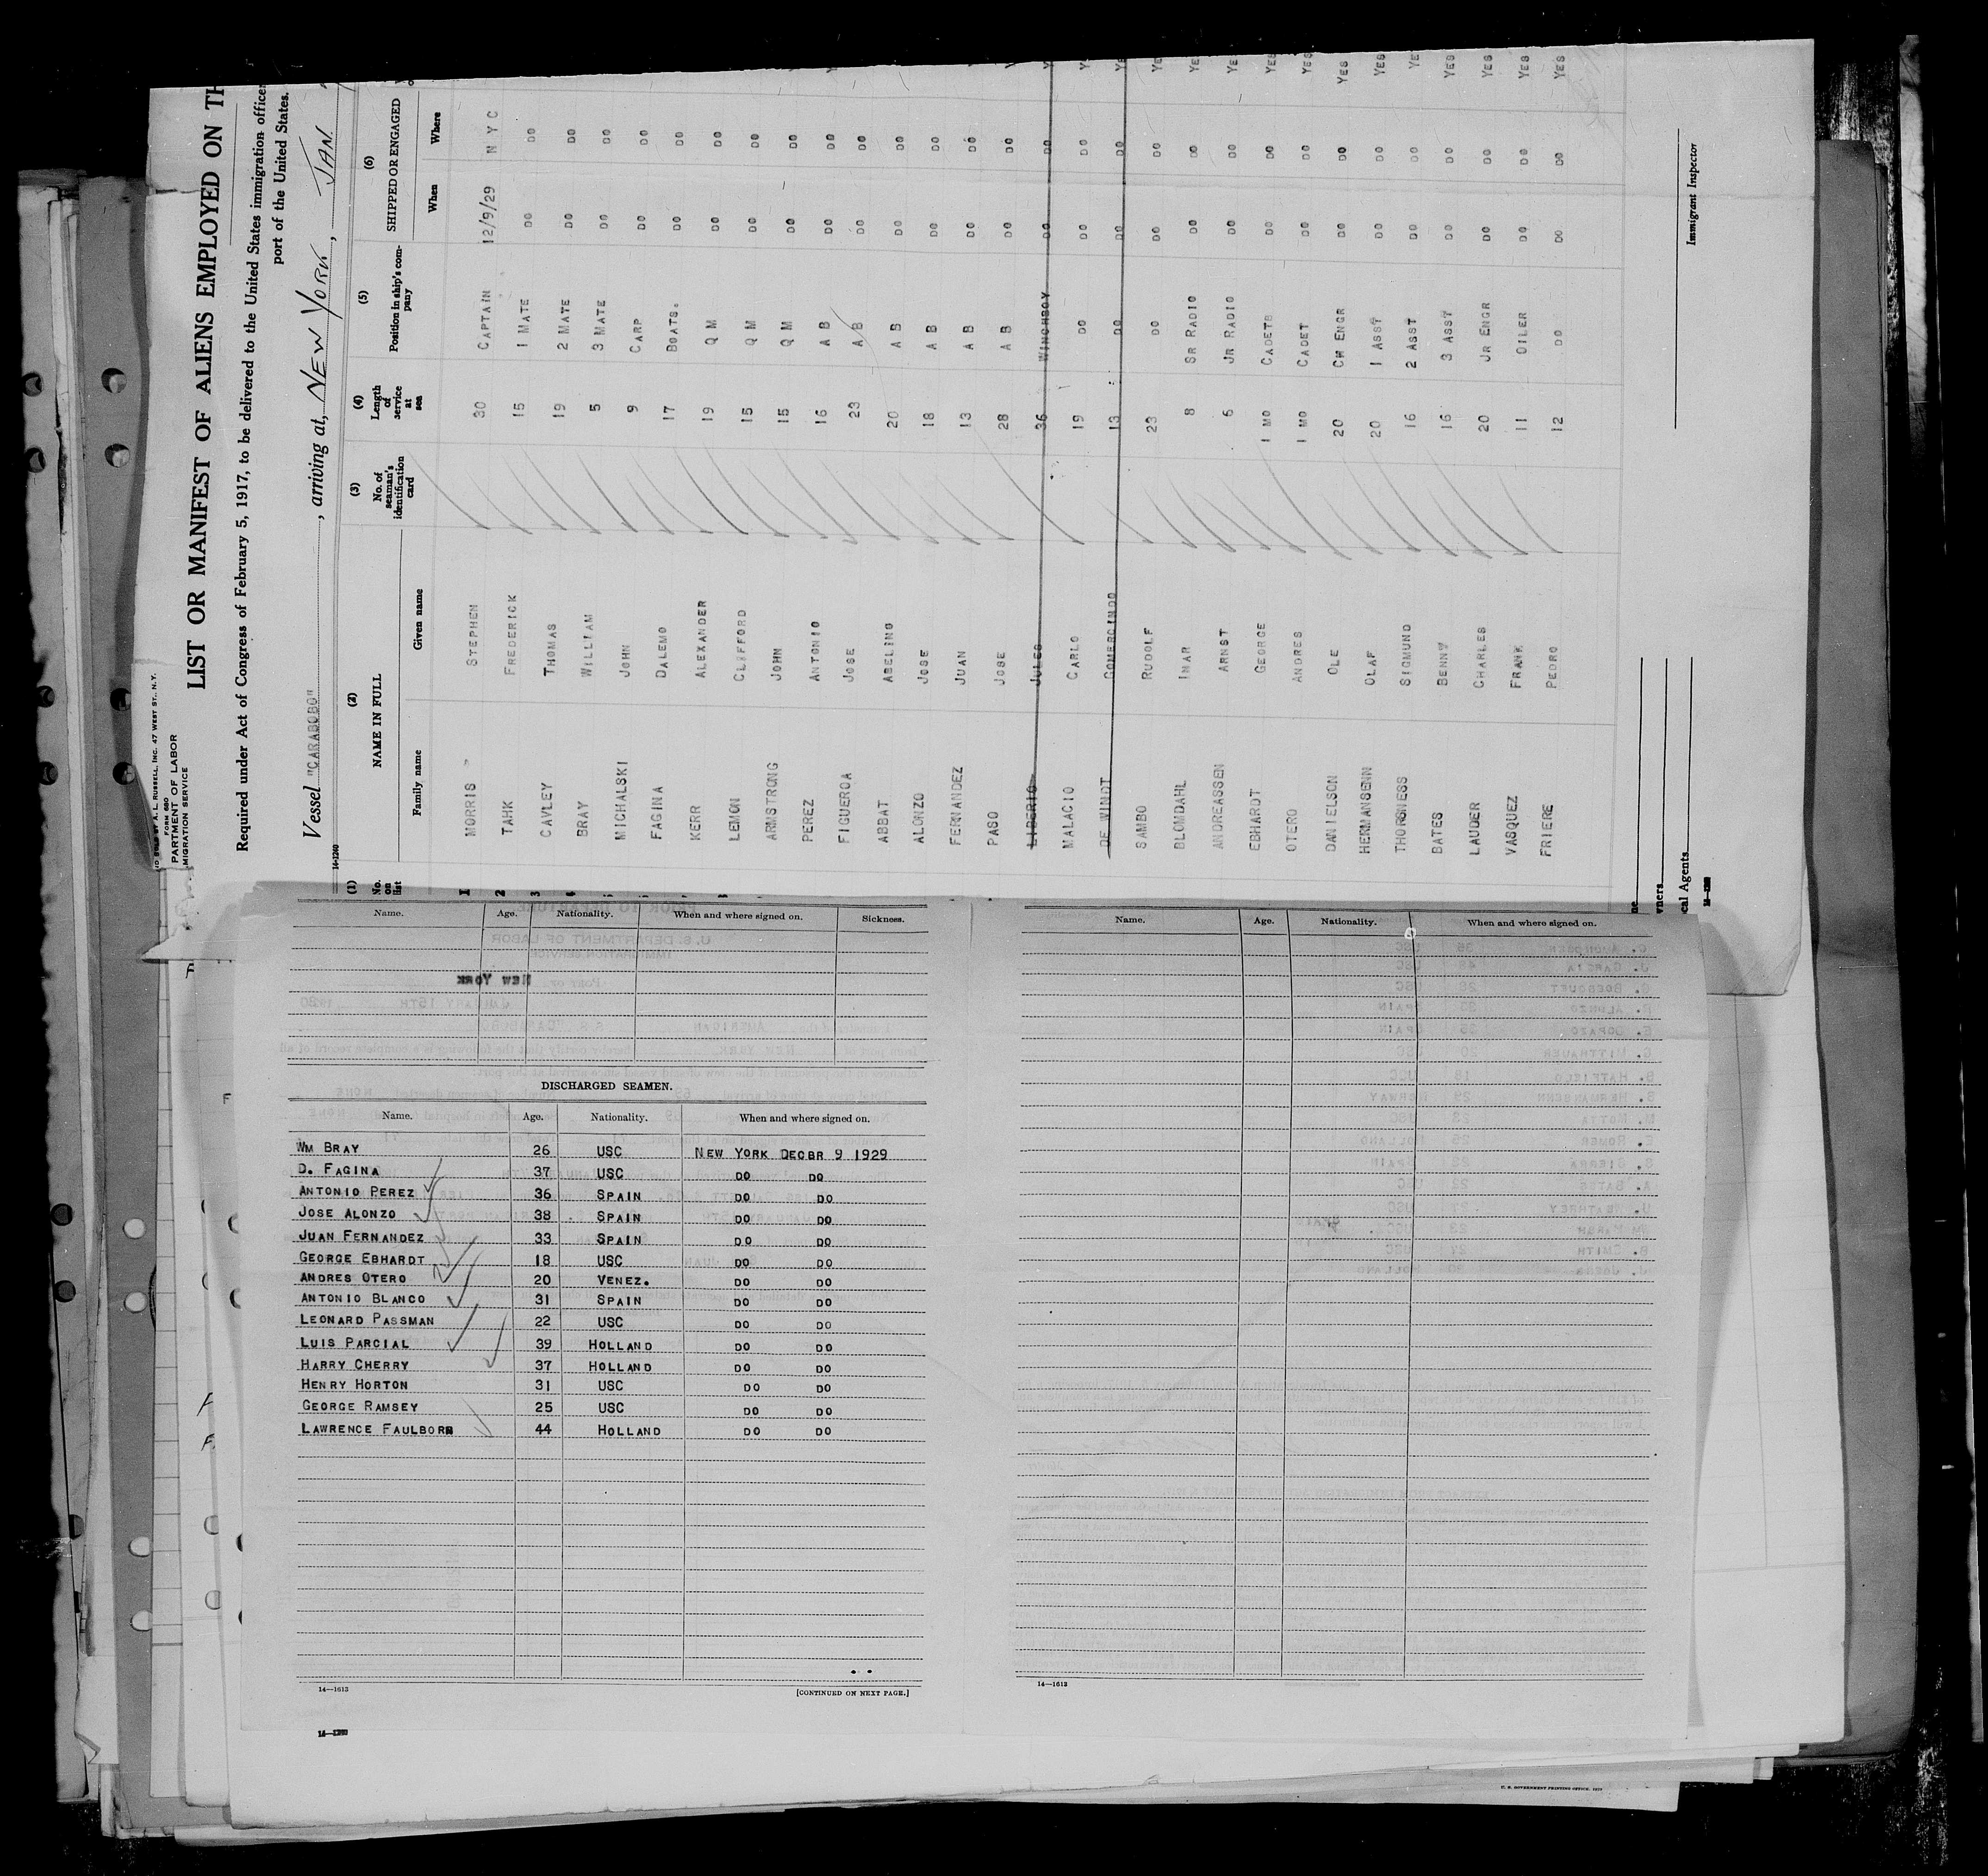 LIST OR MANIFEST OF ALIENS EMPLOYED ON
Required under Act of Congress of February 5, 1917, to be delivered to the United States immigration officer
port of the United States.
Vessel "CARABOBO", arriving at, NEW YORK, JAN.
14-1240
(1) No. on list (2) NAME IN FULL (3) No. of seaman's identification card (4) Length of service at sea (5) Position in ship's company (6) SHIPPED OR ENGAGED
Family name Given name When Where
MORRIS STEPHEN 30 CAPTAIN 12/9/29 N Y C
TAHK FREDERICK 15 1 MATE DO DO
CAVLEY THOMAS 19 2 MATE DO DO
BRAY WILLIAM 5 3 MATE DO DO
MICHALSKI JOHN 9 CARP DO DO
FAGINA DALEMO 17 BOATS. DO DO
KERR ALEXANDER 19 Q M DO DO
LEMON CLIFFORD 15 Q M DO DO
ARMSTRONG JOHN 15 Q M DO DO
PEREZ ANTONIO 16 A B DO DO
FIGUEROA JOSE 23 A B DO DO
ABBAT ABELINO 20 A B DO DO
ALONZO JOSE 18 A B DO DO
FERNANDEZ JUAN 13 A B DO DO
PASO JOSE 28 A B DO DO
LIBERIO JULES 36 WINCHBOY DO DO
MALACIO CARLO 19 DO DO DO
DE WINDT GOMERCINDO 13 DO DO DO YES
SAMBO RUDOLF 23 DO DO DO YES
BLOMDAHL INAR 8 SR RADIO DO DO YES
ANDREASSEN ARNST 6 JR RADIO DO DO YES
EBHARDT GEORGE 1 MO CADETS DO DO YES
OTERO ANDRES 1 MO CADET DO DO YES
DANIELSON OLE 20 CH ENGR DO DO YES
HERMANSENN OLAF 20 1 ASST DO DO YES
THORSNESS SIGMUND 16 2 ASST DO DO YES
BATES BENNY 16 3 ASST DO DO YES
LAUDER CHARLES 20 JR ENGR DO DO YES
VASQUEZ FRANK 11 OILER DO DO YES
FRIERE PEDRO 12 DO DO DO YES
Immigrant Inspector
Name. Age. Nationality. When and where signed on. Sickness.
DISCHARGED SEAMEN.
Name. Age. Nationality. When and where signed on.
WM BRAY 26 USC NEW YORK DECBR 9 1929
D. FAGINA 37 USC DO DO
ANTONIO PEREZ 36 SPAIN DO DO
JOSE ALONZO 38 SPAIN DO DO
JUAN FERNANDEZ 33 SPAIN DO DO
GEORGE EBHARDT 18 USC DO DO
ANDRES OTERO 20 VENEZ. DO DO
ANTONIO BLANCO 31 SPAIN DO DO
LEONARD PASSMAN 22 USC DO DO
LUIS PARCIAL 39 HOLLAND DO DO
HARRY CHERRY 37 HOLLAND DO DO
HENRY HORTON 31 USC DO DO
GEORGE RAMSEY 25 USC DO DO
LAWRENCE FAULBORN 44 HOLLAND DO DO
14—1613 [CONTINUED ON NEXT PAGE.]
Name. Age. Nationality. When and where signed on.
14—1613
U. S. GOVERNMENT PRINTING OFFICE